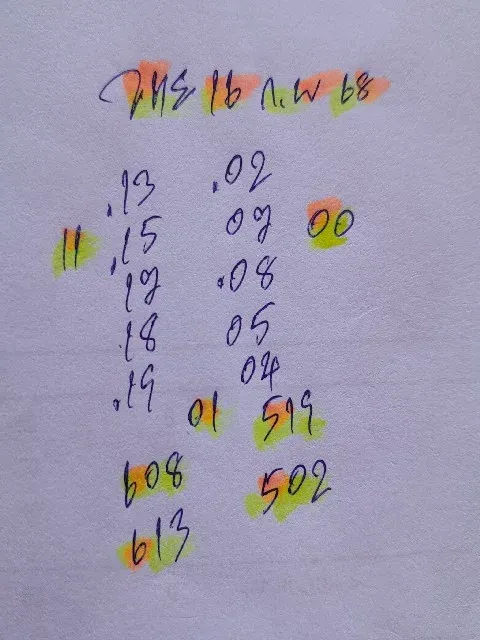 16 ก.พ 68
.13 .02
11 .15 07 00
17 .08
.18 05
.19 04
01 519
608 502
613